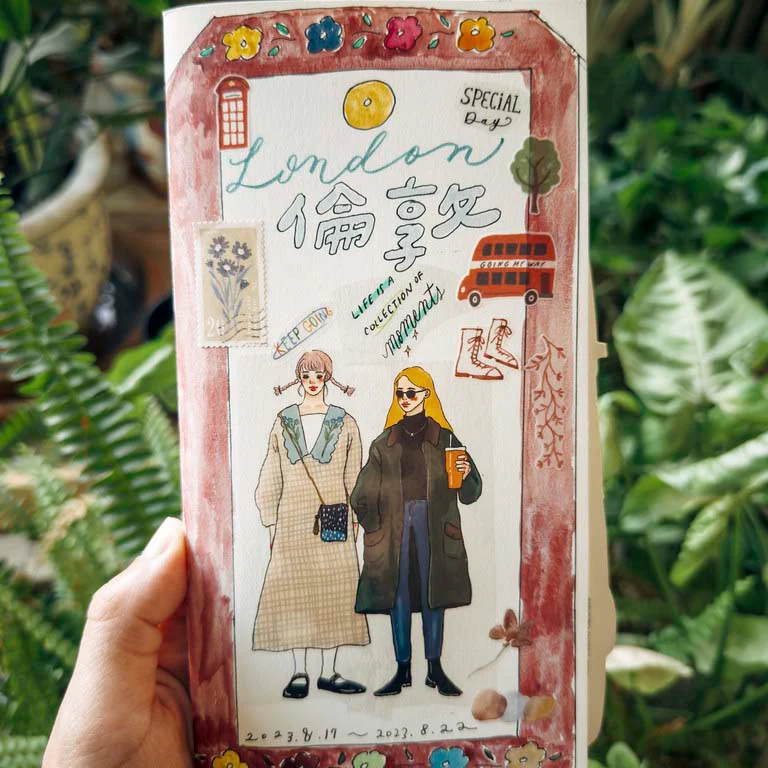 SPECiAL
Day
London
倫敦
GOING MY WAY
LIFE IS A
COLLECTION OF
moments
KEEP GOING
2023.8.17 ~ 2023.8.22